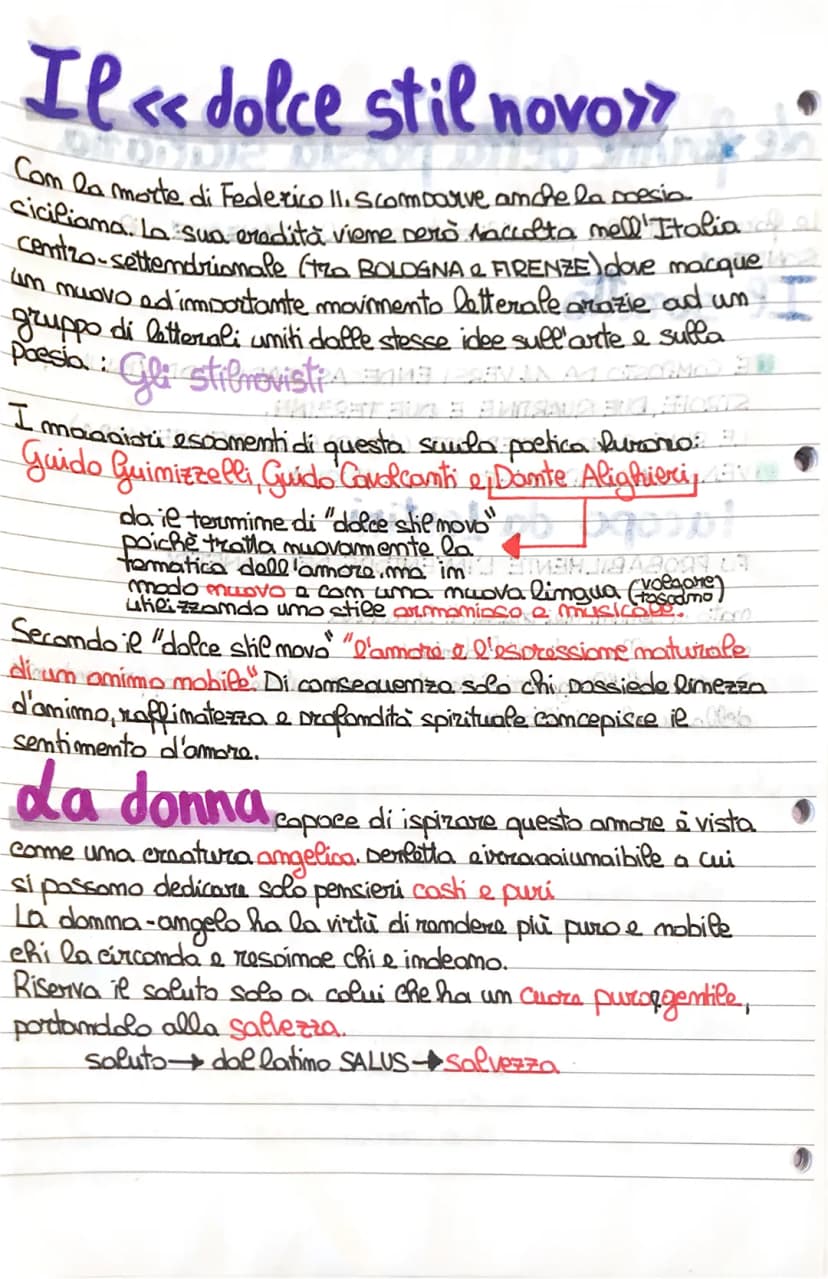 Il «dolce stil novo»
Con la morte di Federico II, scomparve anche la poesia
siciliana. La sua eredità viene però raccolta nell'Italia
centro-settendrionale (tra BOLOGNA e FIRENZE) dove nacque
un nuovo ed importante movimento letterale grazie ad un
gruppo di letterali uniti dalle stesse idee sull'arte e sulla
poesia: Gli stilnovisti
I maggiori esponenti di questa scuola poetica furono:
Guido Guinizzelli, Guido Cavalcanti e Dante Alighieri,
da il termine di "dolce stil novo"
poichè tratta nuovamente la
tematica dell'amore, ma in
modo nuovo e con una nuova lingua (volgare)
(toscano)
utilizzando uno stile armonioso e musicale.
Secondo il "dolce stil novo" "l'amore e l'espressione naturale
di un animo nobile" Di conseguenza solo chi possiede finezza
d'animo, raffinatezza e profondità spirituale concepisce il
sentimento d'amore.
La donna capace di ispirare questo amore è vista
come una creatura angelica, perfetta e irraggiumaibile a cui
si possono dedicare solo pensieri casti e puri
La donna-angelo ha la virtù di rendere più puro e nobile
chi la circonda e respinge chi e indegno.
Riserva il saluto solo a colui che ha un cuore puro e gentile,
portandolo alla salvezza.
saluto → dal latino SALUS → salvezza